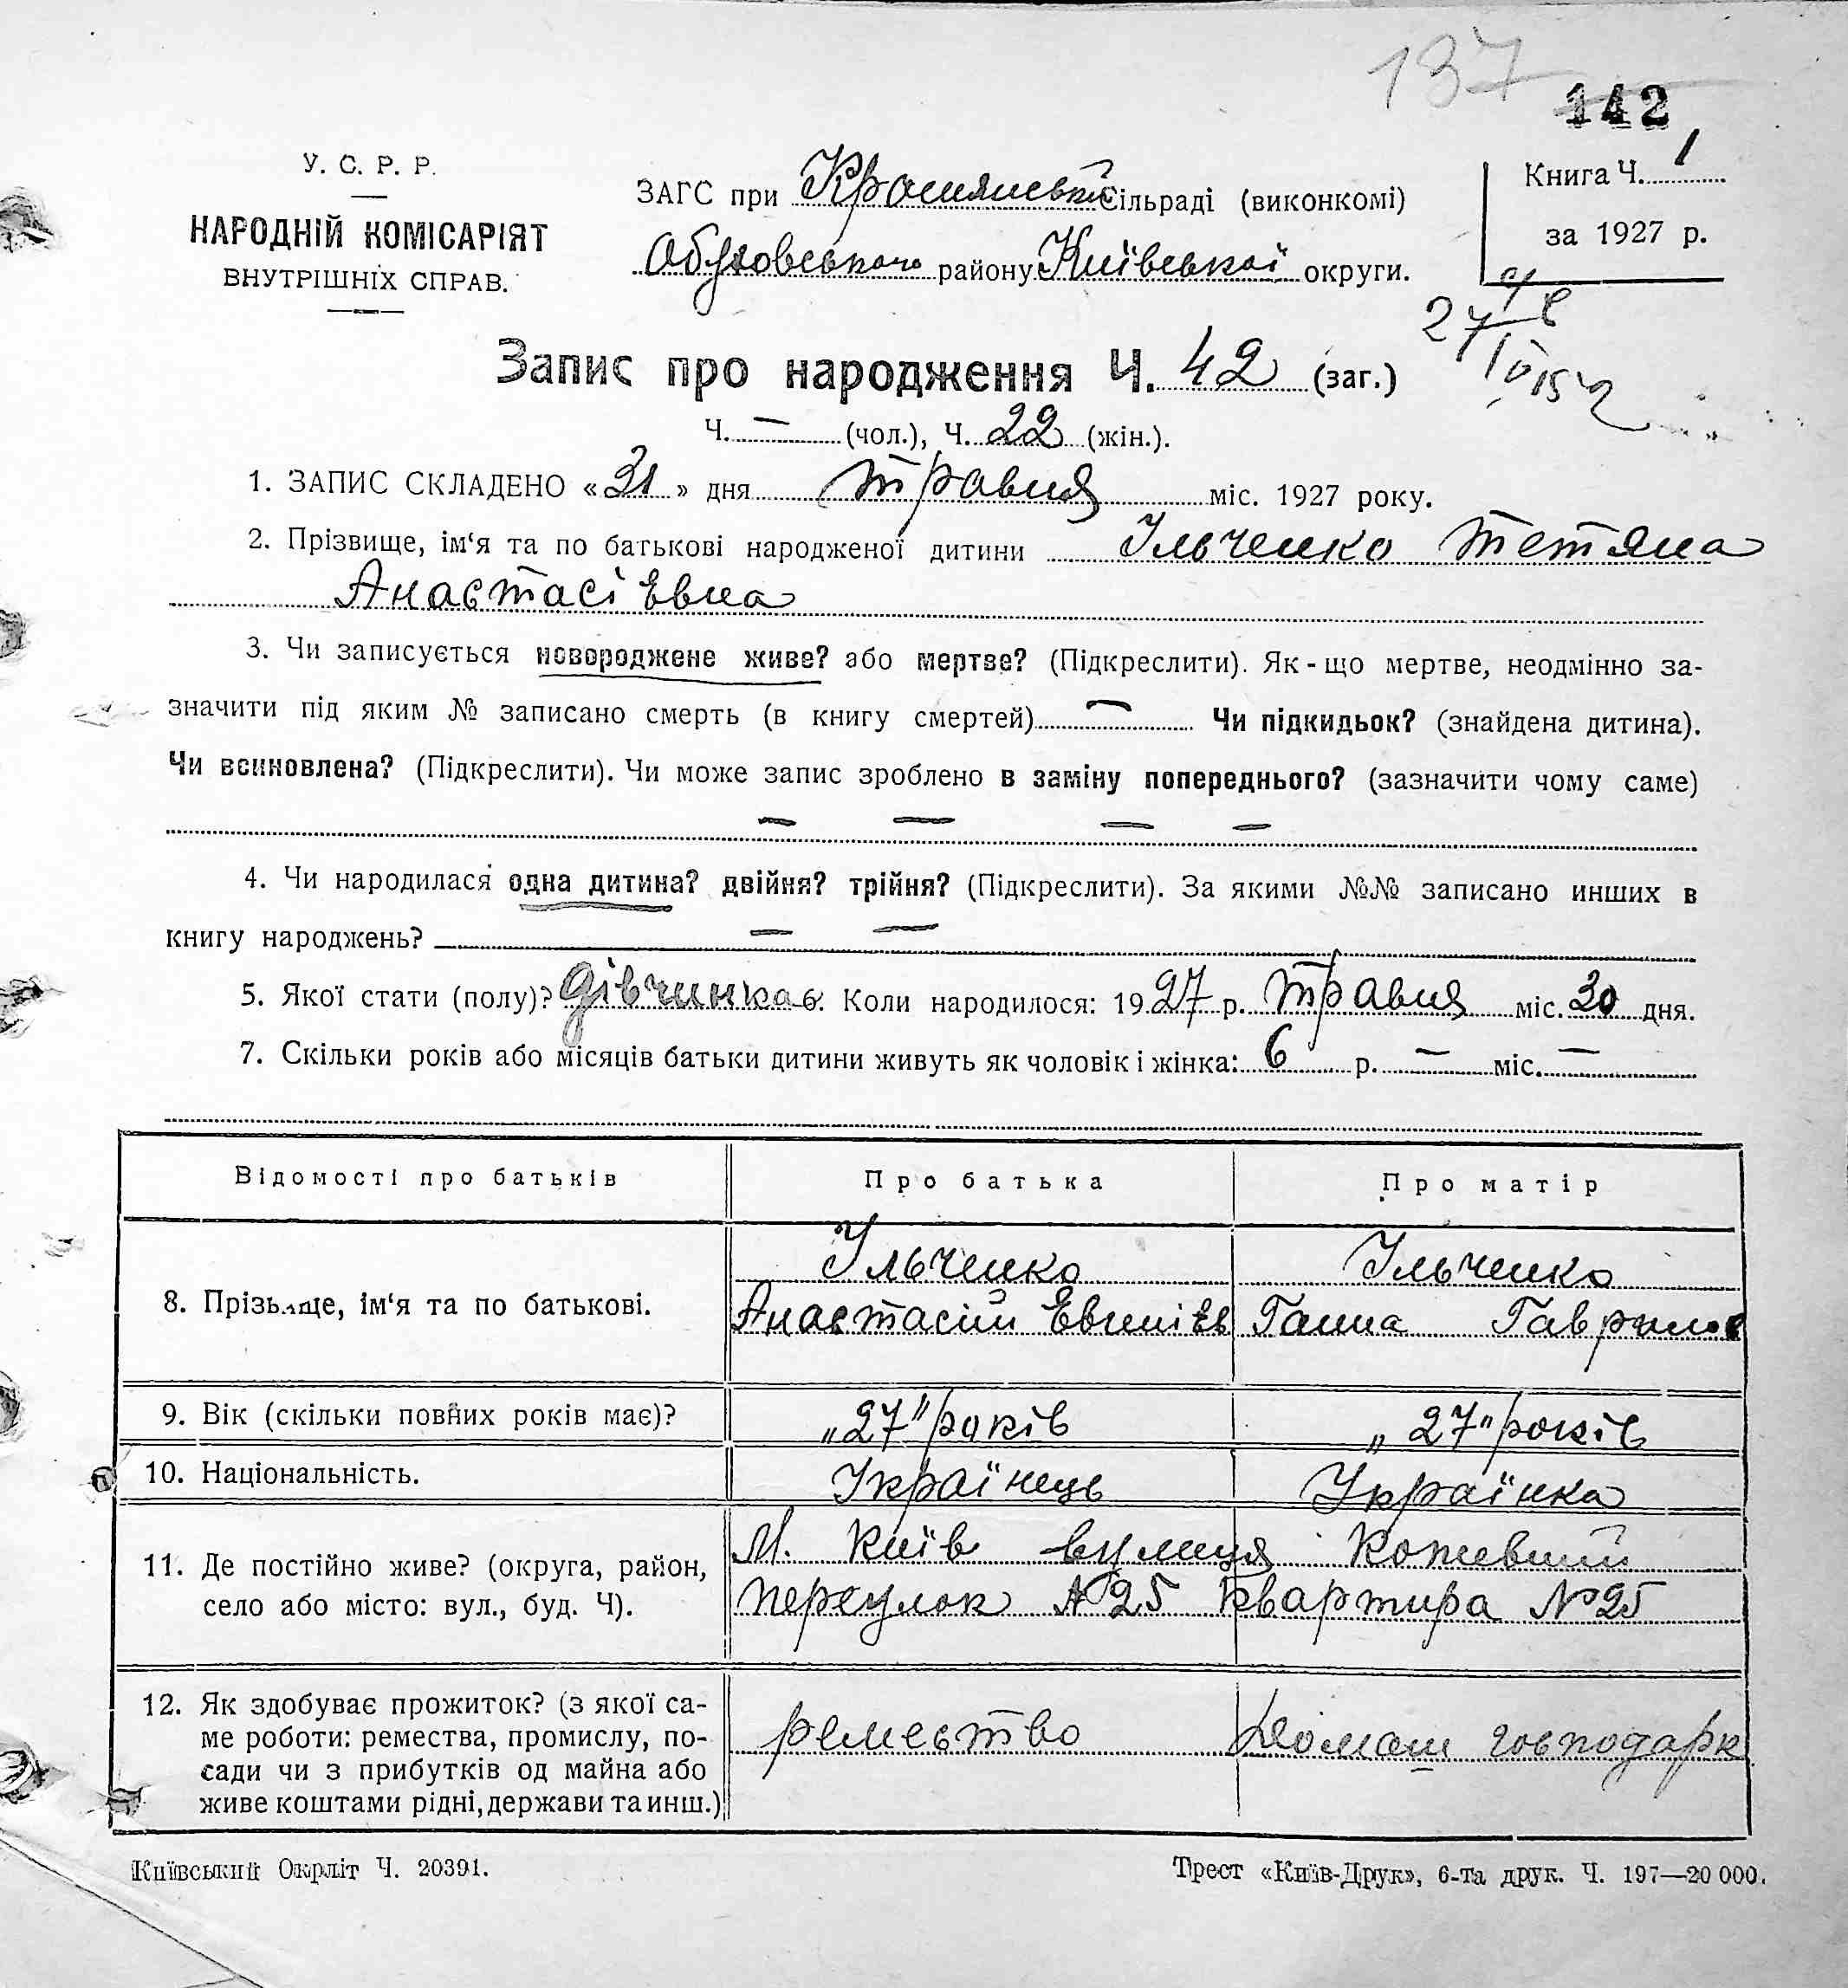 137
142
У. С. Р. Р.
НАРОДНІЙ КОМІСАРІЯТ
ВНУТРІШНІХ СПРАВ.
ЗАГС при сільраді (виконкомі)
Обуховського району Київської округи.
Книга Ч. 1
за 1927 р.
Запис про народження Ч. 42 (заг.)
Ч. — (чол.), Ч. 22 (жін.).
1. ЗАПИС СКЛАДЕНО «31» дня травня міс. 1927 року.
2. Прізвище, ім'я та по батькові народженої дитини Ільченко Тетяна
Анастасієвна
3. Чи записується новороджене живе? або мертве? (Підкреслити). Як-що мертве, неодмінно за-
значити під яким № записано смерть (в книгу смертей) — Чи підкидьок? (знайдена дитина).
Чи всиновлена? (Підкреслити). Чи може запис зроблено в заміну попереднього? (зазначити чому саме)
— — — —
4. Чи народилася одна дитина? двійня? трійня? (Підкреслити). За якими №№ записано инших в
книгу народжень? — —
5. Якої стати (полу)? дівчинка 6. Коли народилося: 1927 р. травня міс. 30 дня.
7. Скільки років або місяців батьки дитини живуть як чоловік і жінка: 6 р. — міс. —
Відомості про батьків Про батька Про матір
Ільченко Ільченко
8. Прізвище, ім'я та по батькові. Анастасій Ганна
9. Вік (скільки повних років має)? „27" років „27" років
10. Національність. Українець Українка
11. Де постійно живе? (округа, район, М. Київ вулиця
село або місто: вул., буд. Ч). переулок №25 квартира №25
12. Як здобуває прожиток? (з якої са-
ме роботи: ремества, промислу, по- ремество Домаш господарк
сади чи з прибутків од майна або
живе коштами рідні, держави та инш.)
Київський Окрліт Ч. 20391.
Трест «Київ-Друк», 6-та друк. Ч. 197—20 000.